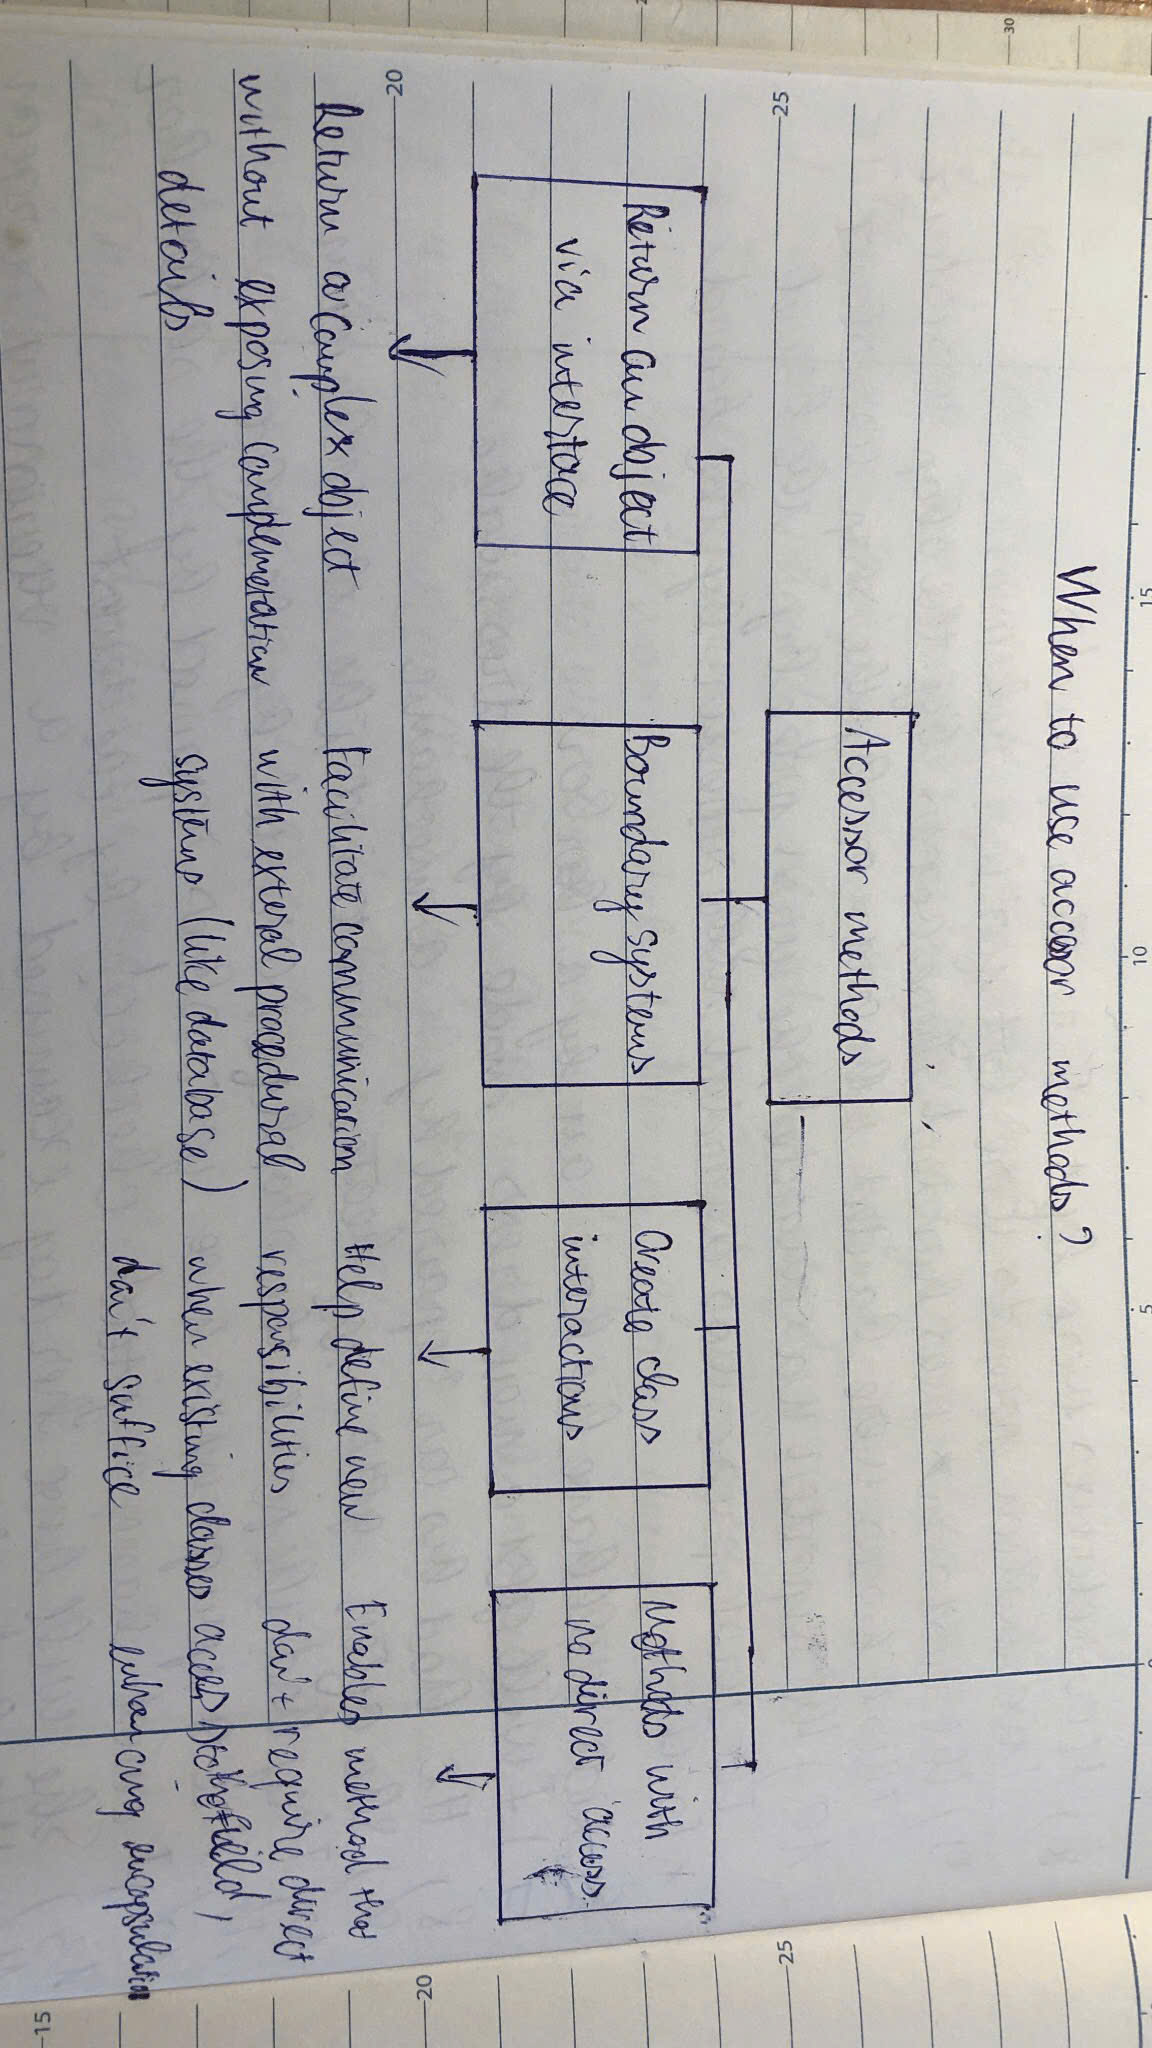 When to use accesor methods?
Accessor methods
Return an object
via interface
Boundary systems
Create class
interactions
Methods with
no direct access
Return a complex object
without exposing complemetation
details
Facilitate communication
with exteral procedural
systems (like database)
Help define new
responsibilities
when existing classes
don't suffice
Enables method that
don't require direct
access to the field,
enhancing encapsulation
15
10
5
0
30
25
25
20
20
15